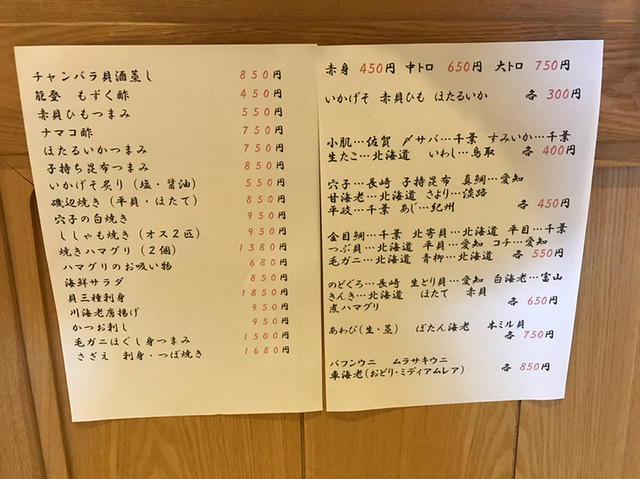 チャンバラ貝酒蒸し 850円
能登 もずく酢 450円
赤貝ひもつまみ 550円
ナマコ酢 750円
ほたるいかつまみ 750円
子持ち昆布つまみ 850円
いかげそ炙り（塩・醤油） 550円
磯辺焼き（平貝・ほたて） 850円
穴子の白焼き 950円
ししゃも焼き（オス２匹） 950円
焼きハマグリ（２個） 1380円
ハマグリのお吸い物 680円
海鮮サラダ 850円
貝三種刺身 1850円
川海老唐揚げ 950円
かつお刺し 950円
毛ガニほぐし身つまみ 1500円
さざえ 刺身・つぼ焼き 1680円
赤身 450円 中トロ 650円 大トロ 750円
いかげそ 赤貝ひも ほたるいか 各 300円
小肌…佐賀 〆サバ…千葉 すみいか…千葉
生たこ…北海道 いわし…鳥取 各 400円
穴子…長崎 子持昆布 真鯛…愛知
甘海老…北海道 さより…淡路
平政…千葉 あじ…紀州 各 450円
金目鯛…千葉 北寄貝…北海道 平目…千葉
つぶ貝…北海道 平貝…愛知 コチ…愛知
毛ガニ…北海道 青柳…北海道 各 550円
のどぐろ…長崎 生とり貝…愛知 白海老…富山
きんき…北海道 ほたて 赤貝
煮ハマグリ 各 650円
あわび（生・蒸） ぼたん海老 本ミル貝
各 750円
バフンウニ ムラサキウニ
車海老（おどり・ミディアムレア） 各 850円